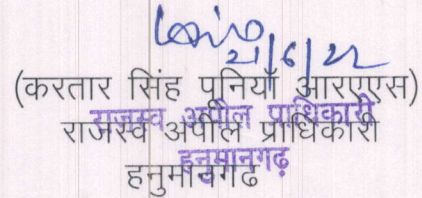 21/6/22
(करतार सिंह पूनियाँ आरएएस)
राजस्व अपील प्राधिकारी
राजस्व अपील प्राधिकारी
हनुमानगढ़
हनुमानगढ